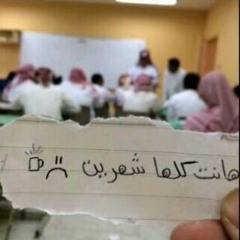 هانت كلها شهرين